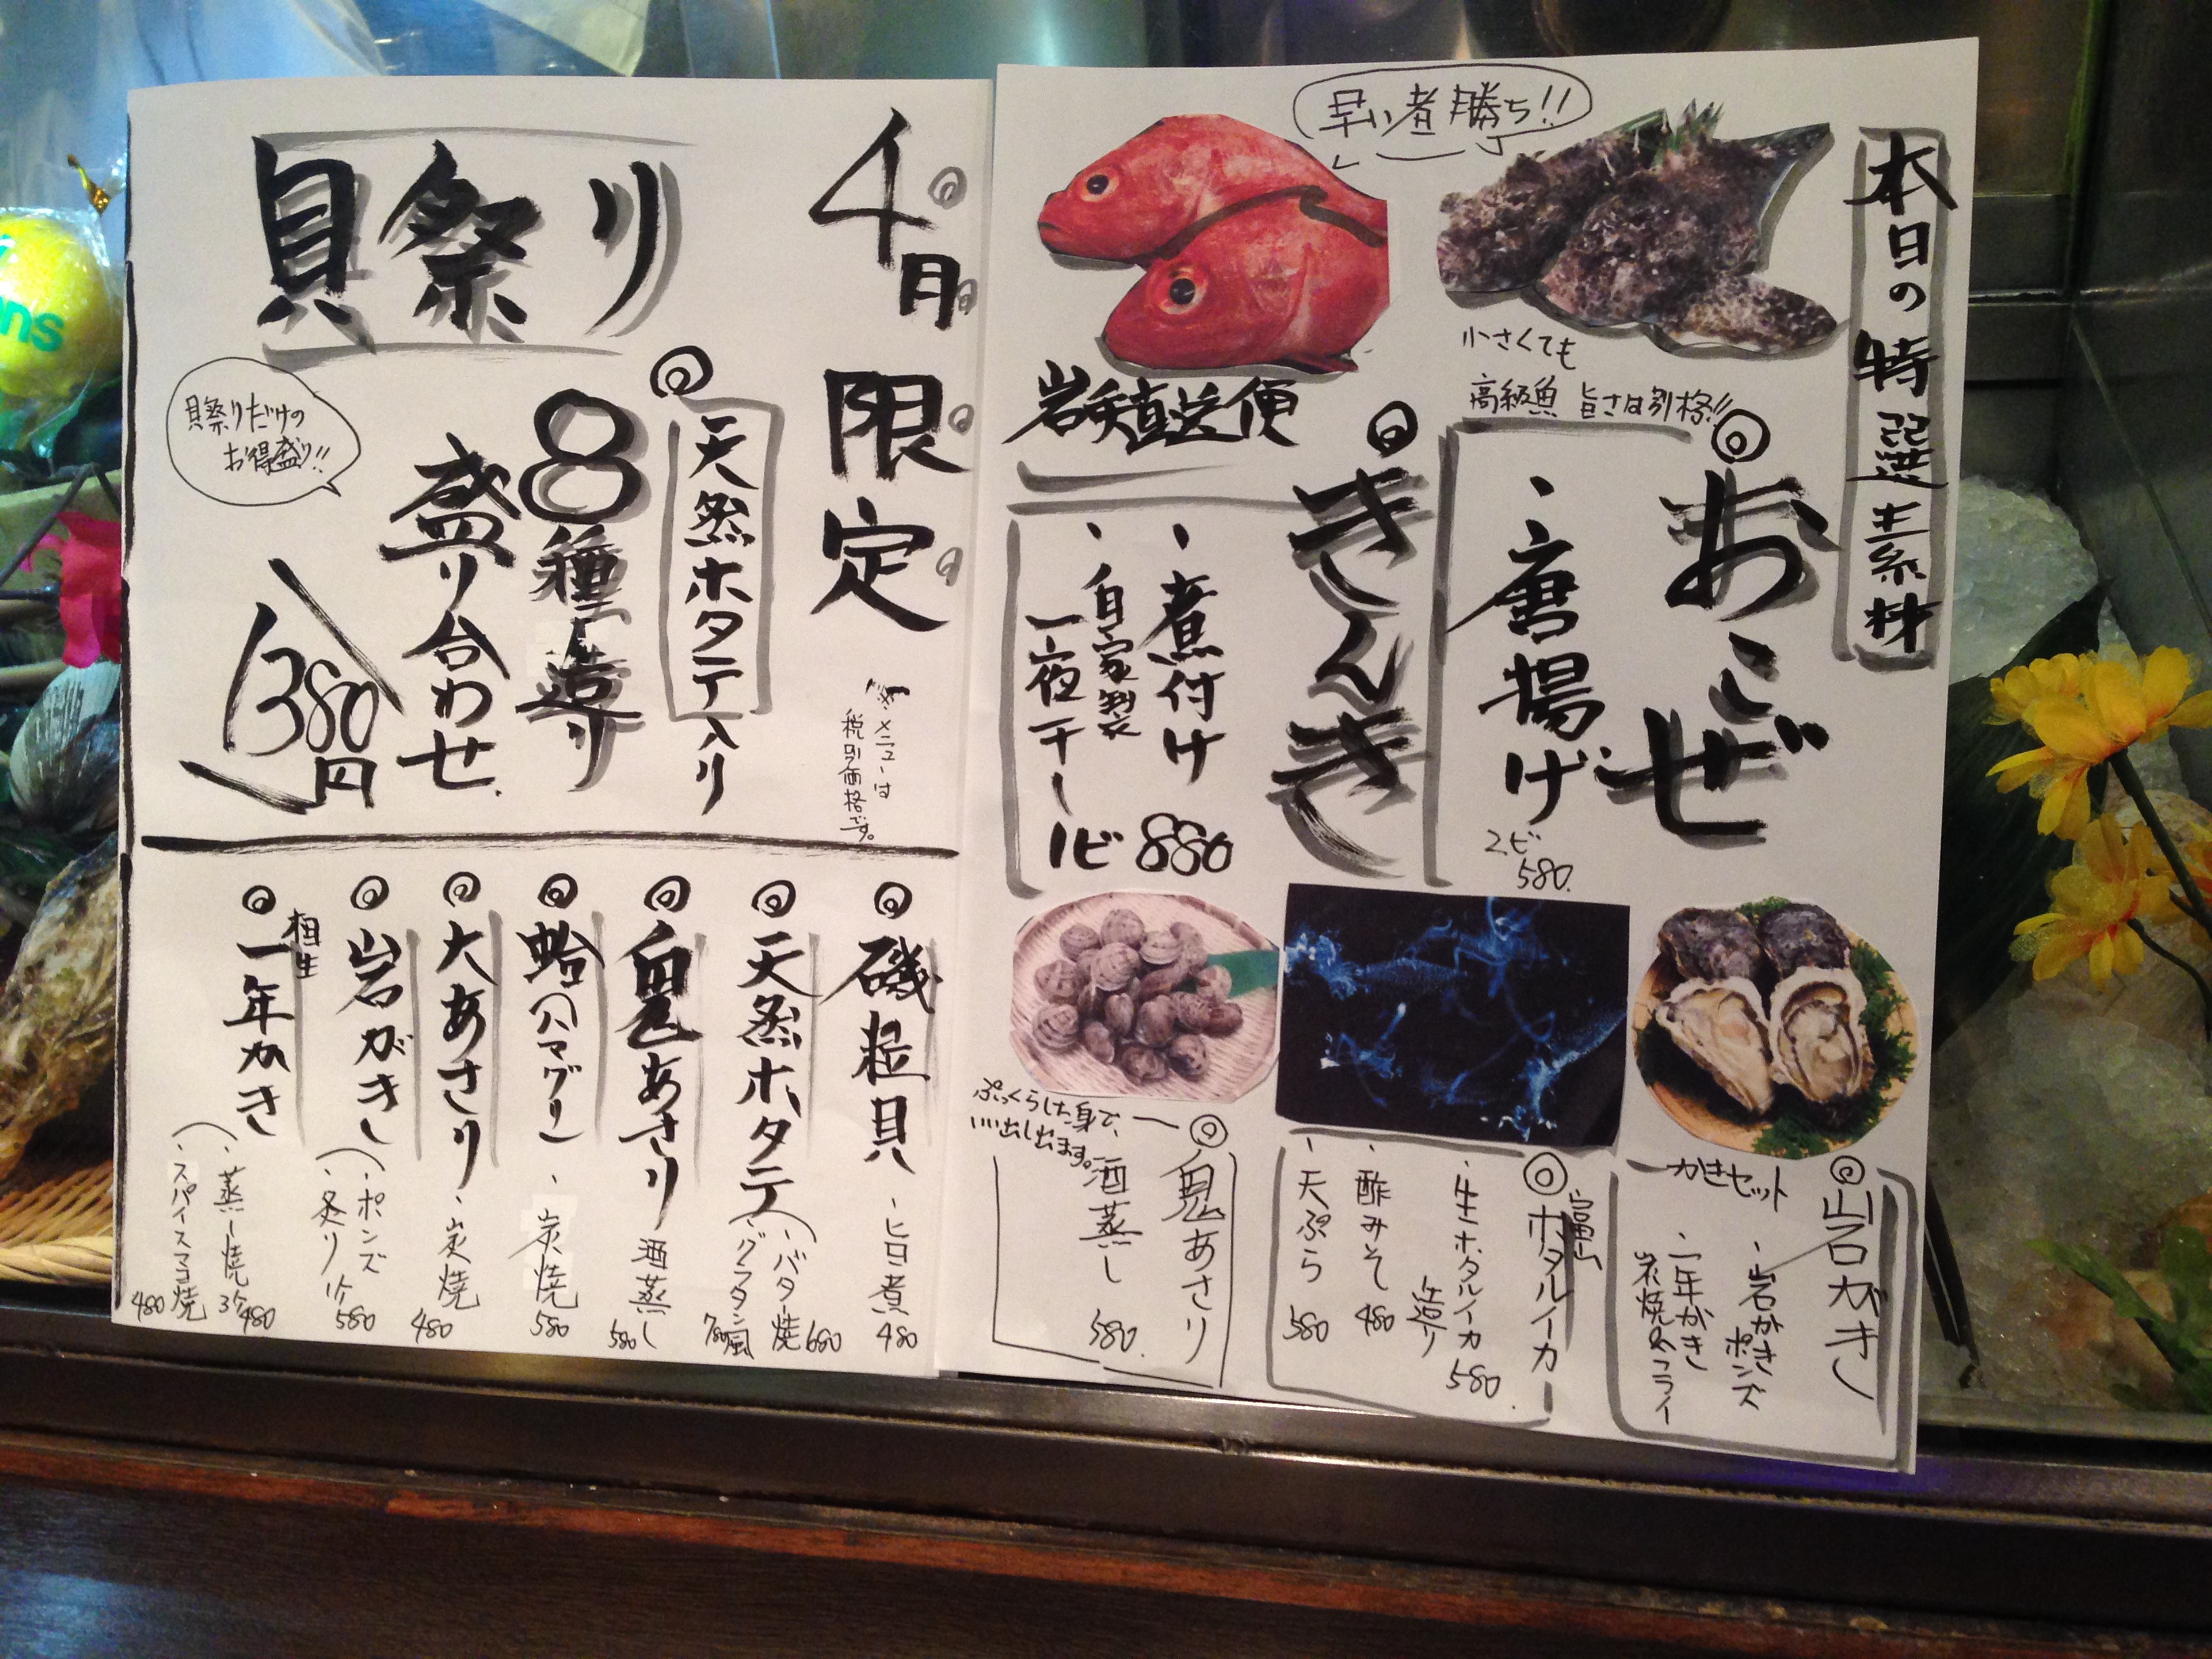 本日の特選素材
早い者勝ち!!
小さくても
高級魚 旨さは別格!!
◎おこぜ
・唐揚げ
2ピ
580
岩手直送便
◎きんき
・煮付け
・自家製
一夜干し
1ピ 880
◎岩がき
かきセット
・岩かき
ポンズ
・一年かき
岩焼&フライ
富山
◎ホタルイカ
・生ホタルイカ
造り
580
・酢みそ
480
・天ぷら
580
ぷっくらした身で、
いい出し出ます。
◎鬼あさり
酒蒸し
580
4月限定
貝祭り
メニューは
税別価格です。
貝祭りだけの
お得盛り!!
◎天然ホタテ入り
8種造り
盛り合わせ
1380円
◎磯粒貝
・ヒロ煮
480
◎天然ホタテ
・バター焼 680
・グラタン風 780
◎鬼あさり
酒蒸し
580
◎蛤(ハマグリ)
・炭焼
580
◎大あさり
・炭焼
480
◎岩がき
・ポンズ
・炙り
1ケ 580
相生
◎一年かき
・蒸し焼 3ケ 480
・スパイスマヨ焼 480